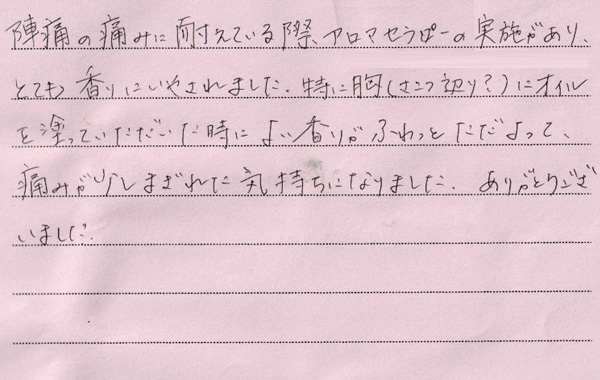 陣痛の痛みに耐えている際、アロマセラピーの実施があり、
とても香りにいやされました。特に胸(さこつ辺り?)にオイル
を塗っていただいた時によい香りがふわっとただよって、
痛みが少しまぎれた気持ちになりました。ありがとうござ
いました。